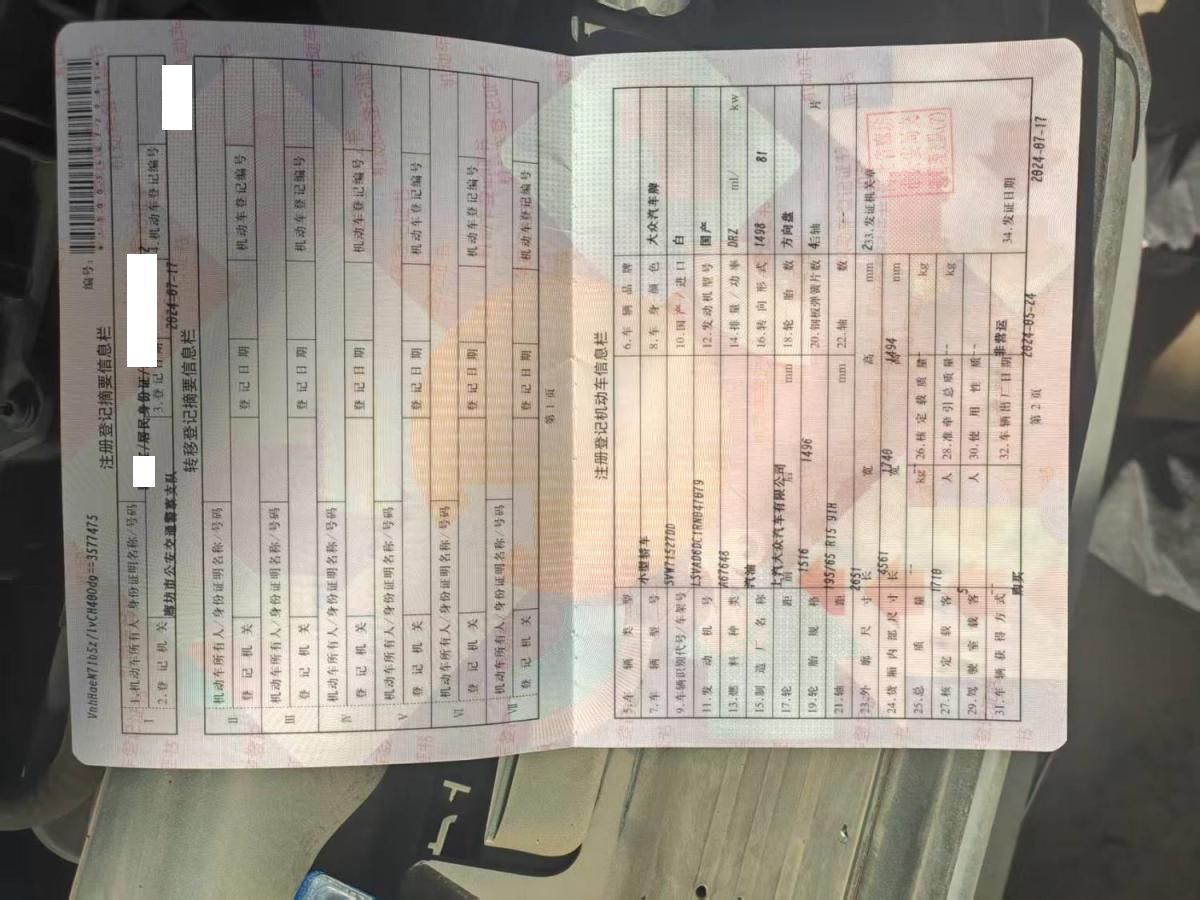 VnhHaeN71b5z/1vCH400dg==3577475
编号：
注册登记摘要信息栏
Ⅰ
1.机动车所有人/身份证明名称/号码
/居民身份证/
2.登记机关
廊坊市公安交通警察支队
3.登记日期
2024-07-17
4.机动车登记编号
转移登记摘要信息栏
Ⅱ
机动车所有人/身份证明名称/号码
登记机关 登记日期 机动车登记编号
Ⅲ
机动车所有人/身份证明名称/号码
登记机关 登记日期 机动车登记编号
Ⅳ
机动车所有人/身份证明名称/号码
登记机关 登记日期 机动车登记编号
Ⅴ
机动车所有人/身份证明名称/号码
登记机关 登记日期 机动车登记编号
Ⅵ
机动车所有人/身份证明名称/号码
登记机关 登记日期 机动车登记编号
Ⅶ
机动车所有人/身份证明名称/号码
登记机关 登记日期 机动车登记编号
第1页
注册登记机动车信息栏
5.车辆类型 小型轿车 6.车辆品牌 大众汽车牌
7.车辆型号 SVW71527DD 8.车身颜色 白
9.车辆识别代号/车架号 LSVAD6DC1RN047079 10.国产/进口 国产
11.发动机号 A67648 12.发动机型号 DRZ
13.燃料种类 汽油 14.排量/功率 1498 ml/ 81 kw
15.制造厂名称 上汽大众汽车有限公司 16.转向形式 方向盘
17.轮距 前 1516 后 1496 mm 18.轮胎数 4
19.轮胎规格 195/65 R15 91H 20.钢板弹簧片数 后轴 -- 片
21.轴距 2651 mm 22.轴数 2
23.外廓尺寸 长 4561 宽 1740 高 1494 mm 33.发证机关章
24.货厢内部尺寸 长 宽 高 mm
25.总质量 1710 kg 26.核定载质量 -- kg
27.核定载客 5 人 28.准牵引总质量 -- kg
29.驾驶室载客 -- 人 30.使用性质 非营运
31.车辆获得方式 购买 32.车辆出厂日期 2024-05-24 34.发证日期 2024-07-17
第2页